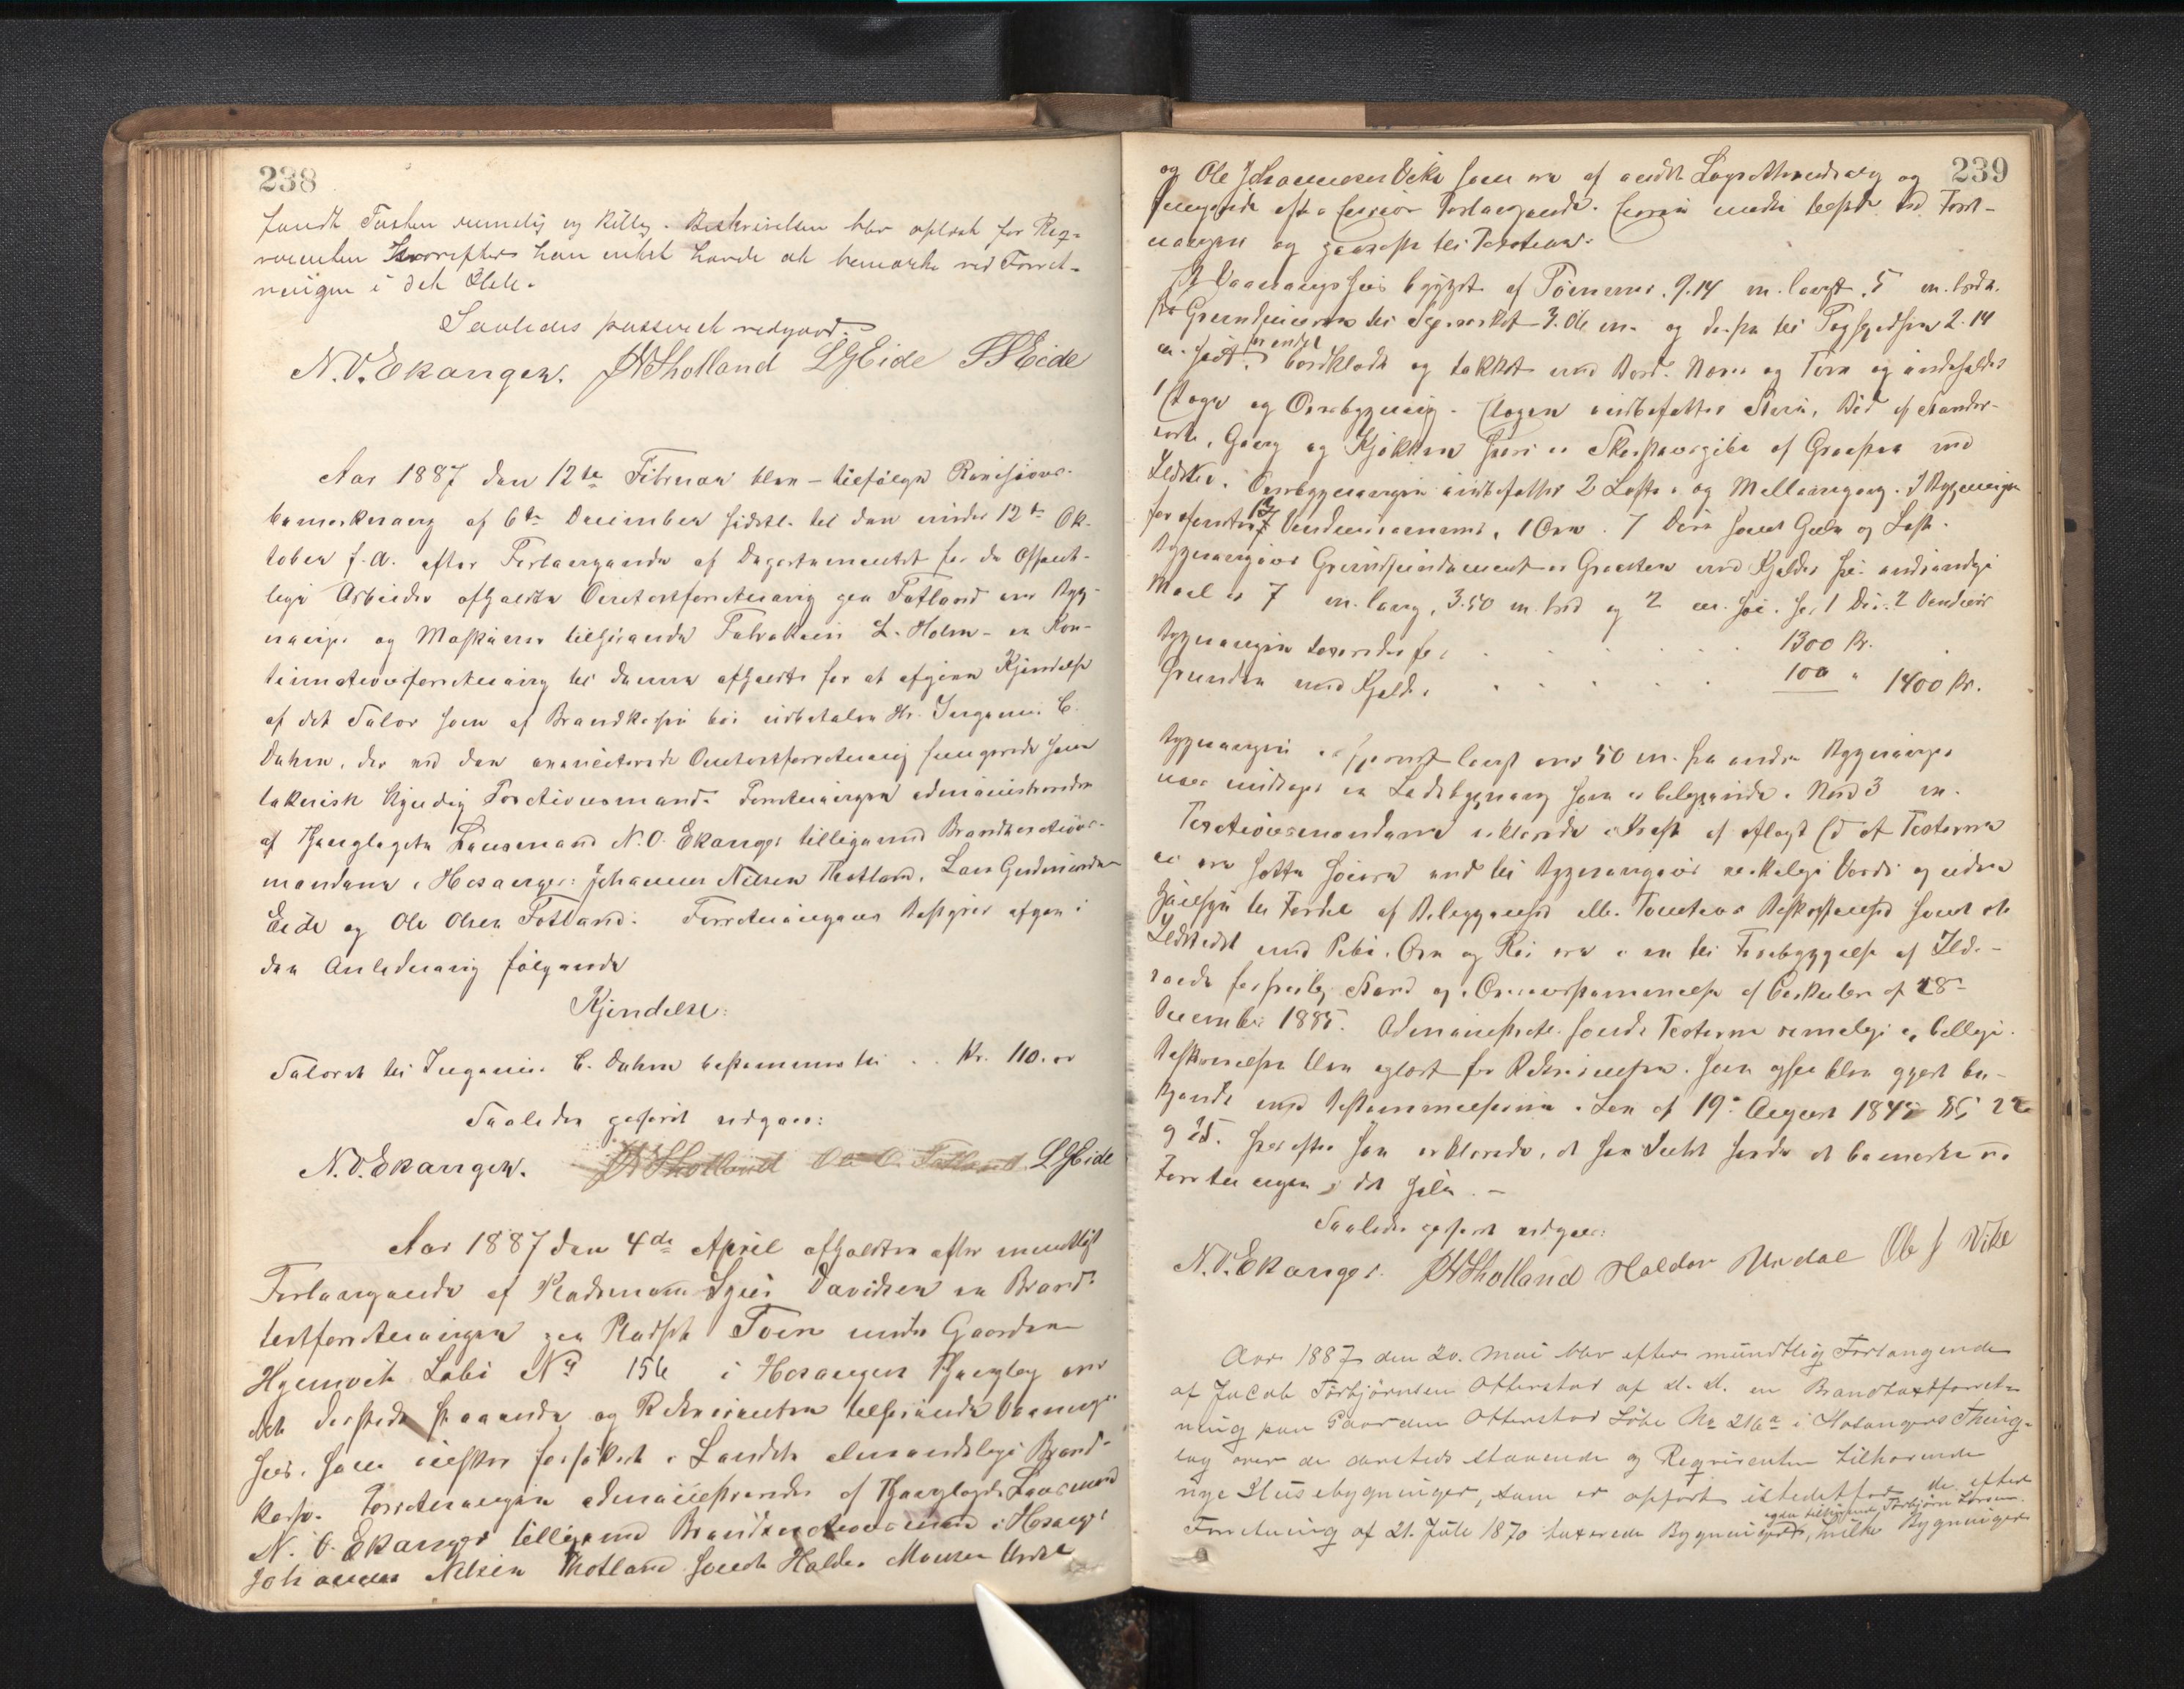 238
fandt Taxten rimelig og billig. Beskrivelsen blev oplæst for Reqvi-
renten hvorefter han intet havde at bemærke ved Forret-
ningen i det Hele.
Saaledes passeret vedgaaes.
N. O. Ekanger. JNThotland LGEide
Aar 1887 den 12te Februar blev – tilfølge Revisions-
bemærkning af 6te December sidstl. til den under 12te Ok-
tober f. A. efter Forlangende af Departementet for de offent-
lige Arbeider afholdte Omtaxtforretning paa Fotland over Byg-
ninger og Maskiner tilhørende Fabrikeier L. Holm – en Kon-
tinuationsforretning til denne afholdt for at afgive Kjendelse
af det Salær som af Brandkassen bør udbetales Hr. Ingeniør C.
Dahm, der ved den omrevidterede Omtaxtforretning fungerede som
teknisk kyndig Taxationsmand. Forretningen administreredes
af Thinglagets Lensmand N. O. Ekanger tilligemed Brandtaxations-
mændene i Hosanger: Johannes Nilsen Thotland, Lars Gudmundsen
Eide og Ole Olsen Fotland. Forretningens Bestyrer afgav i
den Anledning følgende
Kjendelse:
Salæret til Ingeniør C. Dahm bestemmes til . . Kr. 110.00
Saaledes passeret vedgaaes:
N. O. Ekanger. JNThotland Ole O. Fotland LGEide
Aar 1887 den 4de April afholdtes efter mundtligt
Forlangende af Pladsmand Davidsen en Brand-
taxtforretning paa Pladsen under Gaarden
Løbe No 156 i Hosanger Thinglag over
det dersteds staaende og Rekvirenten tilhørende Vaanings-
huus, som ønskes forsikret i Landets almindelige Brand-
kasse. Forretningen administreredes af Thinglagets Lensmand
N. O. Ekanger tilligemed Brandtaxationsmænd i Hosanger
Johannes Nilsen Thotland samt Haldor Monsen Urdal
239
og Ole Johannesen Vike som er af andet Lagretthendes og
fungerede efter Forlangende. mødte tilstede ved Forret-
ningen og til Taxation:
Et Vaaningshuus bygget af Tømmer, 9.14 m. langt, 5 m. bredt.
fra Grundmuren til 3.06 m. og derfra til 2.14
m. høit, bordklædt og tækket med Bord, Næver og Torv og indeholder
1 Stoge og Ovnbygning. Stogen indbefatter Stue,
Gang og Kjøkken hvori er Skorsteenspibe af Graasteen med
Ildsted. Ovnbygningen indbefatter 2 Lofte og Mellemgang. I Bygningen
forefindes Vinduesrammer, 1 Ovn. 7 Døre samt Gulv og Loft.
Bygningens Grundfundament er Graasteen med Kjelder hvis indvendige
Maal er 7 m. lang, 3.50 m. bred og 2 m. høi. har 1 Dør. 2 Vinduer
Bygningen taxeredes for . . . . . . 1300 Kr.
Grunden med Kjelder . . . . . . 100 " 1400 Kr.
Bygningen er opført langt over 50 m. fra andre Bygninger
naar undtages en Ladebygning som er beliggende i Nord 3 m.
Taxationsmændene erklærede i Kraft af aflagt Ed at Taxterne
ei ere satte høiere end til Bygningens verkelige Værdi og uden
Hensyn til Fordel af Beliggenhed eller Tomtens Beskaffenhed samt at
Ildstedet med Pibe, Ovn og Rør ere i en til Forebyggelse af Ilds-
vaade forsvarlig Stand og i Overensstemmelse af Cirkulære af 28
December 1885. Administrator fandt Taxterne rimelige og billige.
Beskrivelsen blev oplæst for Rekvirenten, som ogsaa blev gjort be-
kjendt med Bestemmelserne i Lov af 19. August 1845 §§ 22
og 25. hvorefter han erklærede, at han Intet havde at bemærke ved
Forretningen i det Hele. –
Saaledes passeret vedgaaes:
N. O. Ekanger. JNThotland Haldor Urdal Ole J Vike
Aar 1887 den 20. Mai blev efter mündtlig Forlangende
af Jacob Torbjörnsen Otterstad af d. d. en Brandtaxtforret-
ning paa Gaarden Otterstad Löbe No 216a i Hosangers Thing-
lag over de dersteds staaende og Reqvirenten tilhørende
nye Husebygninger, som er opført istedetfor de efter
Forretning af 21. Juli 1870 taxerede Bygninger tilhørende Torbjörn Larsen, hvilke Bygninger